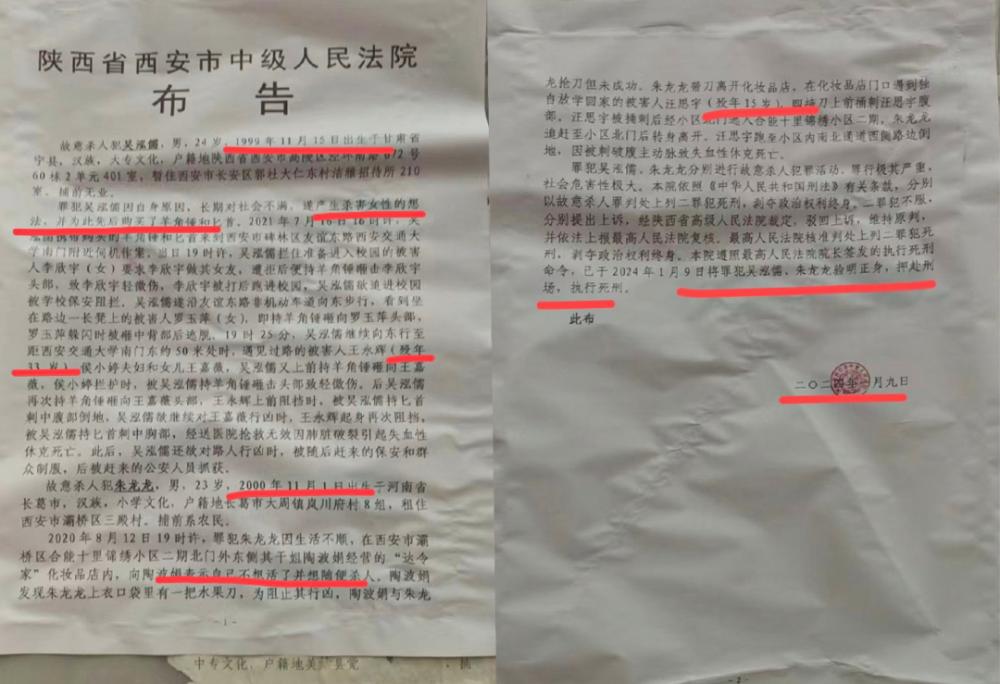 陕西省西安市中级人民法院
布 告
故意杀人犯吴泓儒，男，24岁，1999年11月15日出生于甘肃省
宁县，汉族，大专文化，户籍地陕西省西安市高陵区泾环南路672号
60栋2单元401室，暂住西安市长安区郭杜大仁东村洁雅招待所210
室。捕前无业。
罪犯吴泓儒因自身原因，长期对社会不满，遂产生杀害女性的想
法，并为此先后购买了羊角锤和匕首。2021年7月16日16时许，吴
泓儒携带购买的羊角锤和匕首来到西安市碑林区友谊东路西安交通大
学南门附近伺机作案。当日19时许，吴泓儒拦住准备进入校园的被害
人李欣宇（女）要求李欣宇做其女友，遭拒后便持羊角锤击李欣宇
头部，致李欣宇轻微伤，李欣宇被打后跑进校园，吴泓儒欲追进校园
被学校保安阻拦。吴泓儒遂沿友谊东路非机动车道向东步行，看到坐
在路边一长凳上的被害人罗玉萍（女），即持羊角锤砸向罗玉萍头部，
罗玉萍躲闪时被砸中背部后逃脱。19时25分，吴泓儒继续向东行至
距西安交通大学南门东约50米处时，遇见过路的被害人王永辉（殁年
33岁）、侯小婷夫妇和女儿王嘉薇，吴泓儒又上前持羊角锤砸向王嘉
薇，侯小婷拦护时，被吴泓儒持羊角锤砸击头部致轻微伤。后吴泓儒
再次持羊角锤砸向王嘉薇头部，王永辉上前阻挡时，被吴泓儒持匕首
刺中腹部倒地，吴泓儒欲继续对王嘉薇行凶时，王永辉起身再次阻挡，
被吴泓儒持匕首刺中胸部，经送医院抢救无效因肺脏破裂引起失血性
休克死亡。此后，吴泓儒还欲对路人行凶时，被随后赶来的保安和群
众制服，后被赶来的公安人员抓获。
故意杀人犯朱龙龙，男，23岁，2000年11月1日出生于河南省
长葛市，汉族，小学文化，户籍地长葛市大周镇岚川府村8组，租住
西安市灞桥区三殿村。捕前系农民。
2020年8月12日19时许，罪犯朱龙龙因生活不顺，在西安市灞
桥区合能十里锦绣小区二期北门外东侧其干姐陶波娟经营的“达令
家”化妆品店内，向陶波娟表示自己不想活了并想随便杀人。陶波娟
发现朱龙龙上衣口袋里有一把水果刀，为阻止其行凶，陶波娟与朱龙
-1-
中专文化，户籍地 县党
龙抢刀但未成功。朱龙龙带刀离开化妆品店，在化妆品店门口遇到独
自放学回家的被害人汪思宇（殁年15岁），即持刀上前捅刺汪思宇腹
部。汪思宇被捅刺后经小区北门进入合能十里锦绣小区二期，朱龙龙
追赶至小区北门后转身离开。汪思宇跑至小区内南北通道西侧路边倒
地，因被刺破腹主动脉致失血性休克死亡。
罪犯吴泓儒、朱龙龙分别进行故意杀人犯罪活动，罪行极其严重，
社会危害性极大。本院依照《中华人民共和国刑法》有关条款，分别
以故意杀人罪判处上列二罪犯死刑，剥夺政治权利终身。二罪犯不服，
分别提出上诉，经陕西省高级人民法院裁定，驳回上诉，维持原判，
并依法上报最高人民法院复核。最高人民法院核准判处上列二罪犯死
刑，剥夺政治权利终身。本院遵照最高人民法院院长签发的执行死刑
命令，已于2024年1月9日将罪犯吴泓儒、朱龙龙验明正身，押赴刑
场，执行死刑。
此布
二〇二四年一月九日
-2-